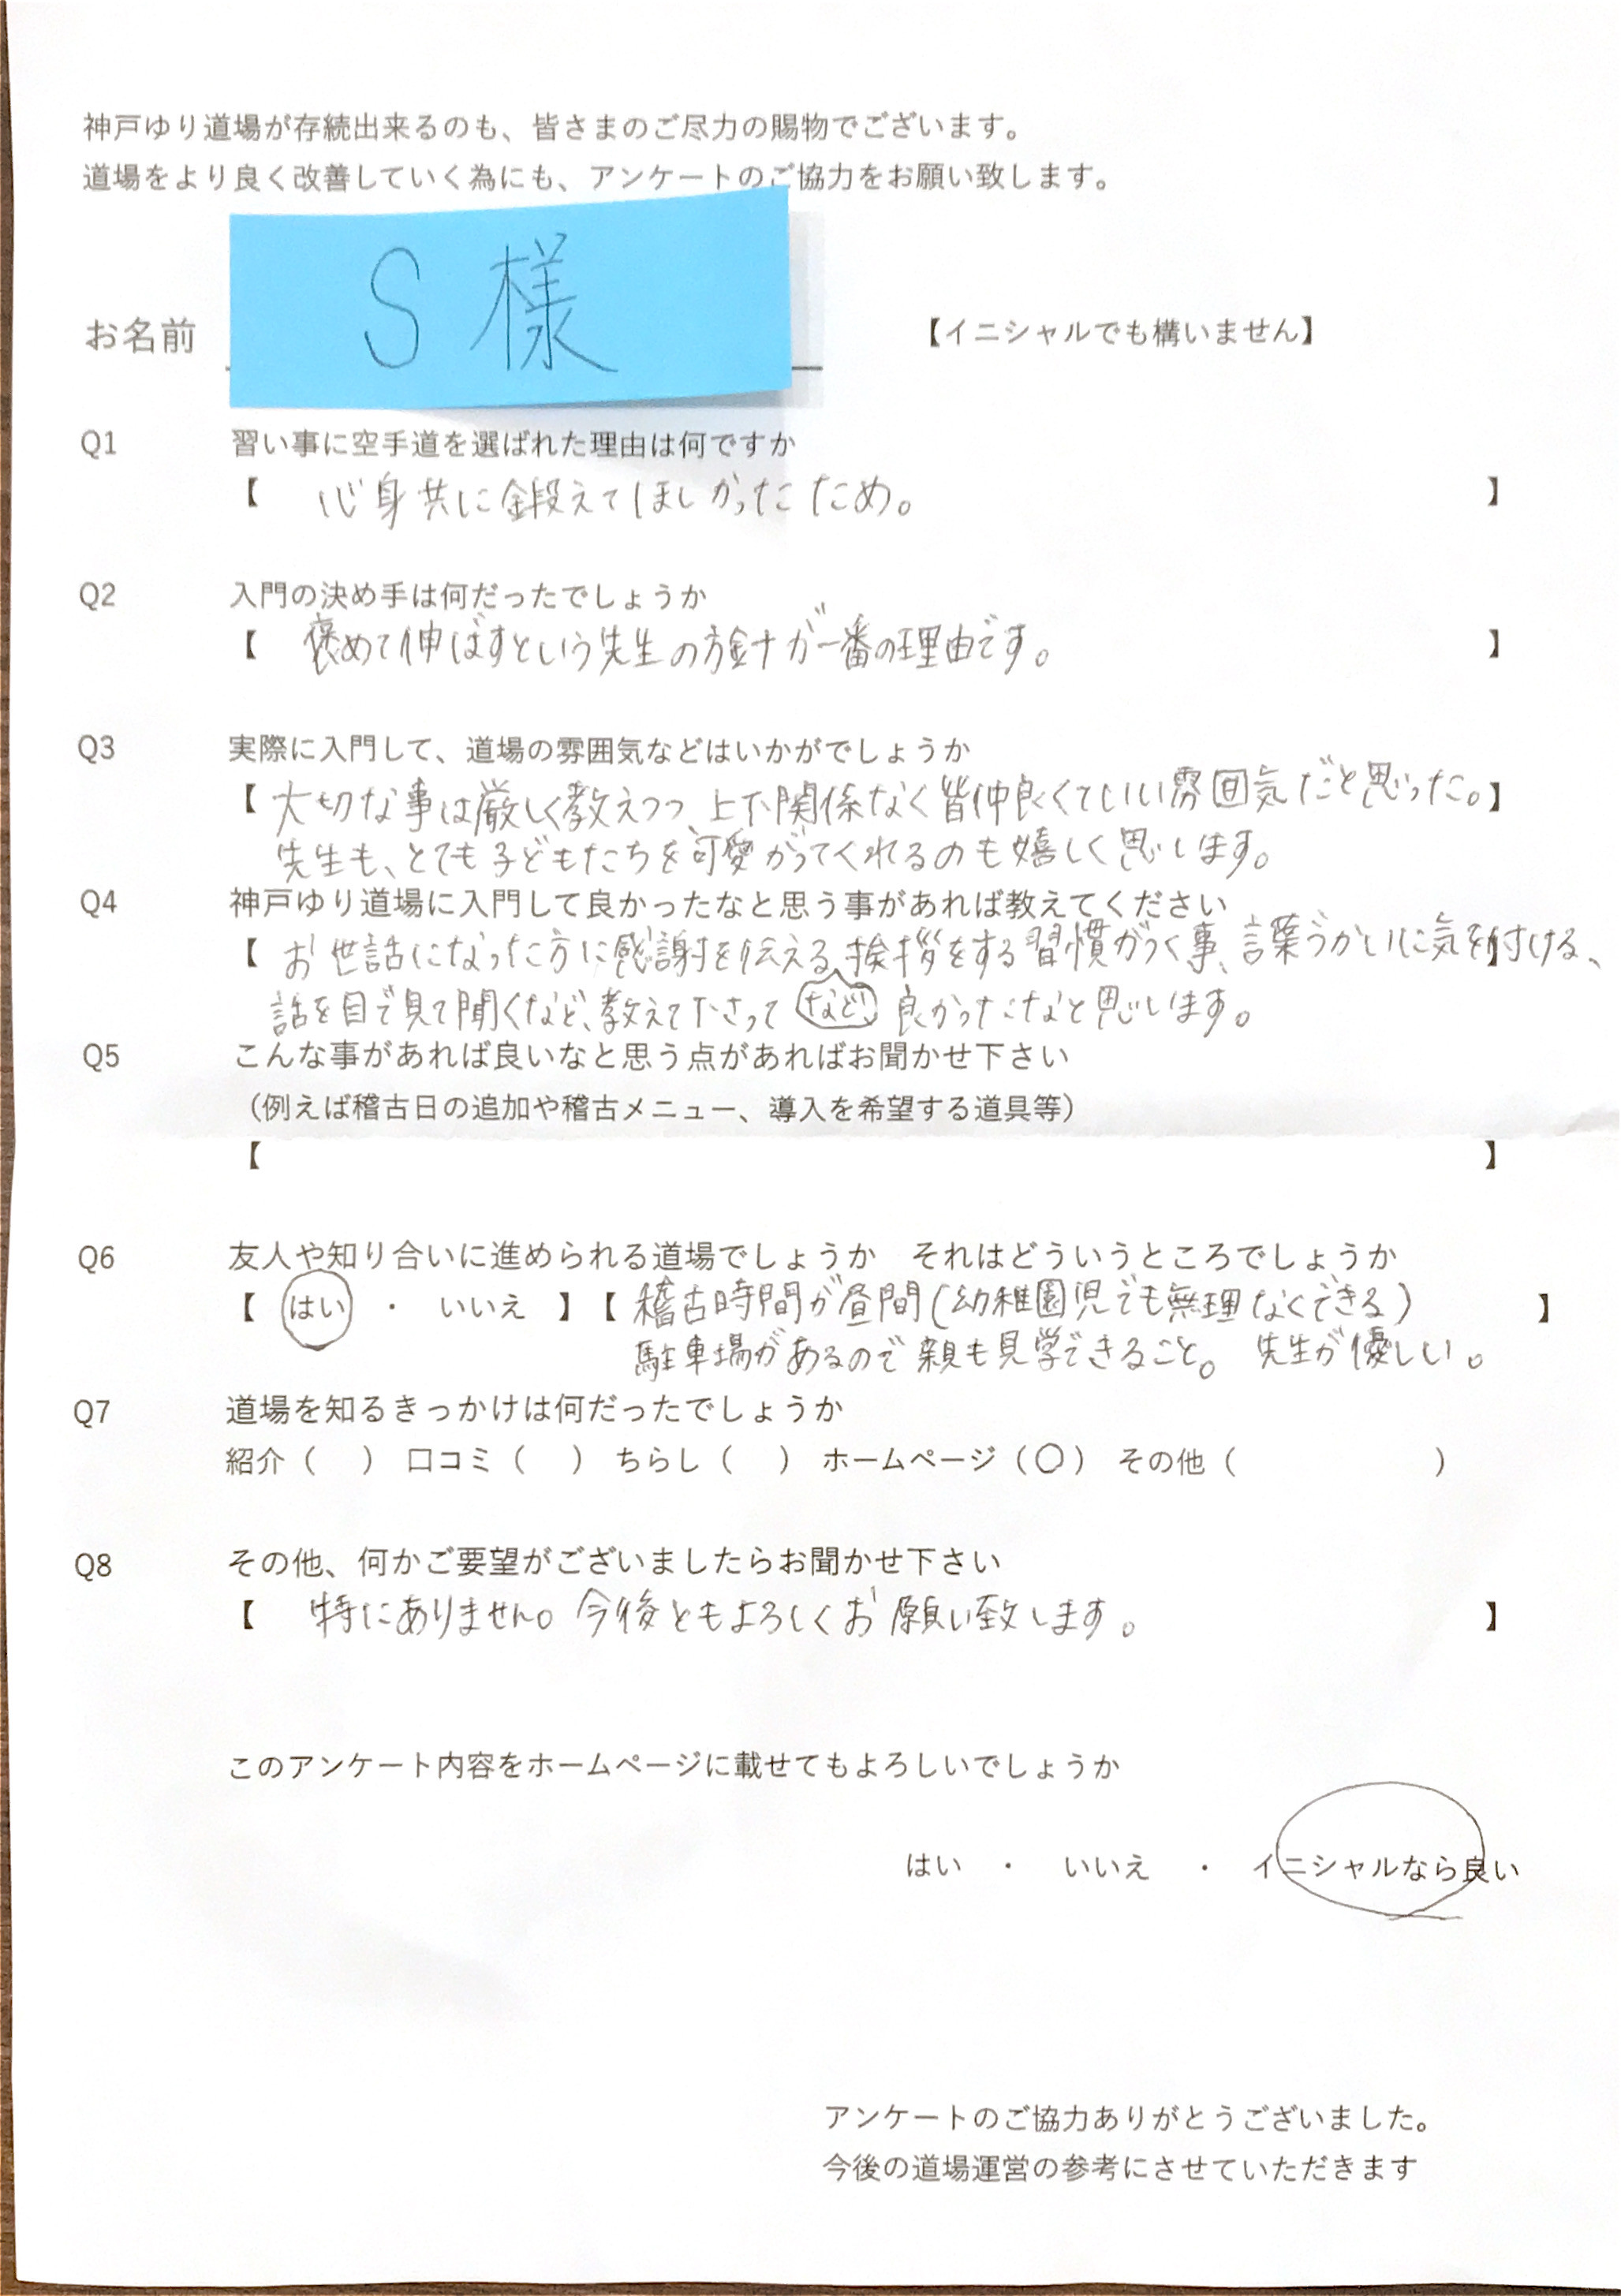 神戸ゆり道場が存続出来るのも、皆さまのご尽力の賜物でございます。
道場をより良く改善していく為にも、アンケートのご協力をお願い致します。
お名前 S様 【イニシャルでも構いません】
Q1 習い事に空手道を選ばれた理由は何ですか
【 心身共に鍛えてほしかったため。 】
Q2 入門の決め手は何だったでしょうか
【 褒めて伸ばすという先生の方針が一番の理由です。 】
Q3 実際に入門して、道場の雰囲気などはいかがでしょうか
【 大切な事は厳しく教えつつ、上下関係なく皆仲良くていい雰囲気だと思った。】
先生も、とても子どもたちを可愛がってくれるのも嬉しく思います。
Q4 神戸ゆり道場に入門して良かったなと思う事があれば教えてください
【 お世話になった方に感謝を伝える、挨拶をする習慣がつく事、言葉づかいに気を付ける、】
話を目で見て聞くなど、教えて下さって など、 良かったなと思います。
Q5 こんな事があれば良いなと思う点があればお聞かせ下さい
（例えば稽古日の追加や稽古メニュー、導入を希望する道具等）
【 】
Q6 友人や知り合いに進められる道場でしょうか それはどういうところでしょうか
【 はい ・ いいえ 】【 稽古時間が昼間（幼稚園児でも無理なくできる） 】
駐車場があるので親も見学できること。 先生が優しい。
Q7 道場を知るきっかけは何だったでしょうか
紹介（ ） 口コミ（ ） ちらし（ ） ホームページ（○） その他（ ）
Q8 その他、何かご要望がございましたらお聞かせ下さい
【 特にありません。今後ともよろしくお願い致します。 】
このアンケート内容をホームページに載せてもよろしいでしょうか
はい ・ いいえ ・ イニシャルなら良い
アンケートのご協力ありがとうございました。
今後の道場運営の参考にさせていただきます